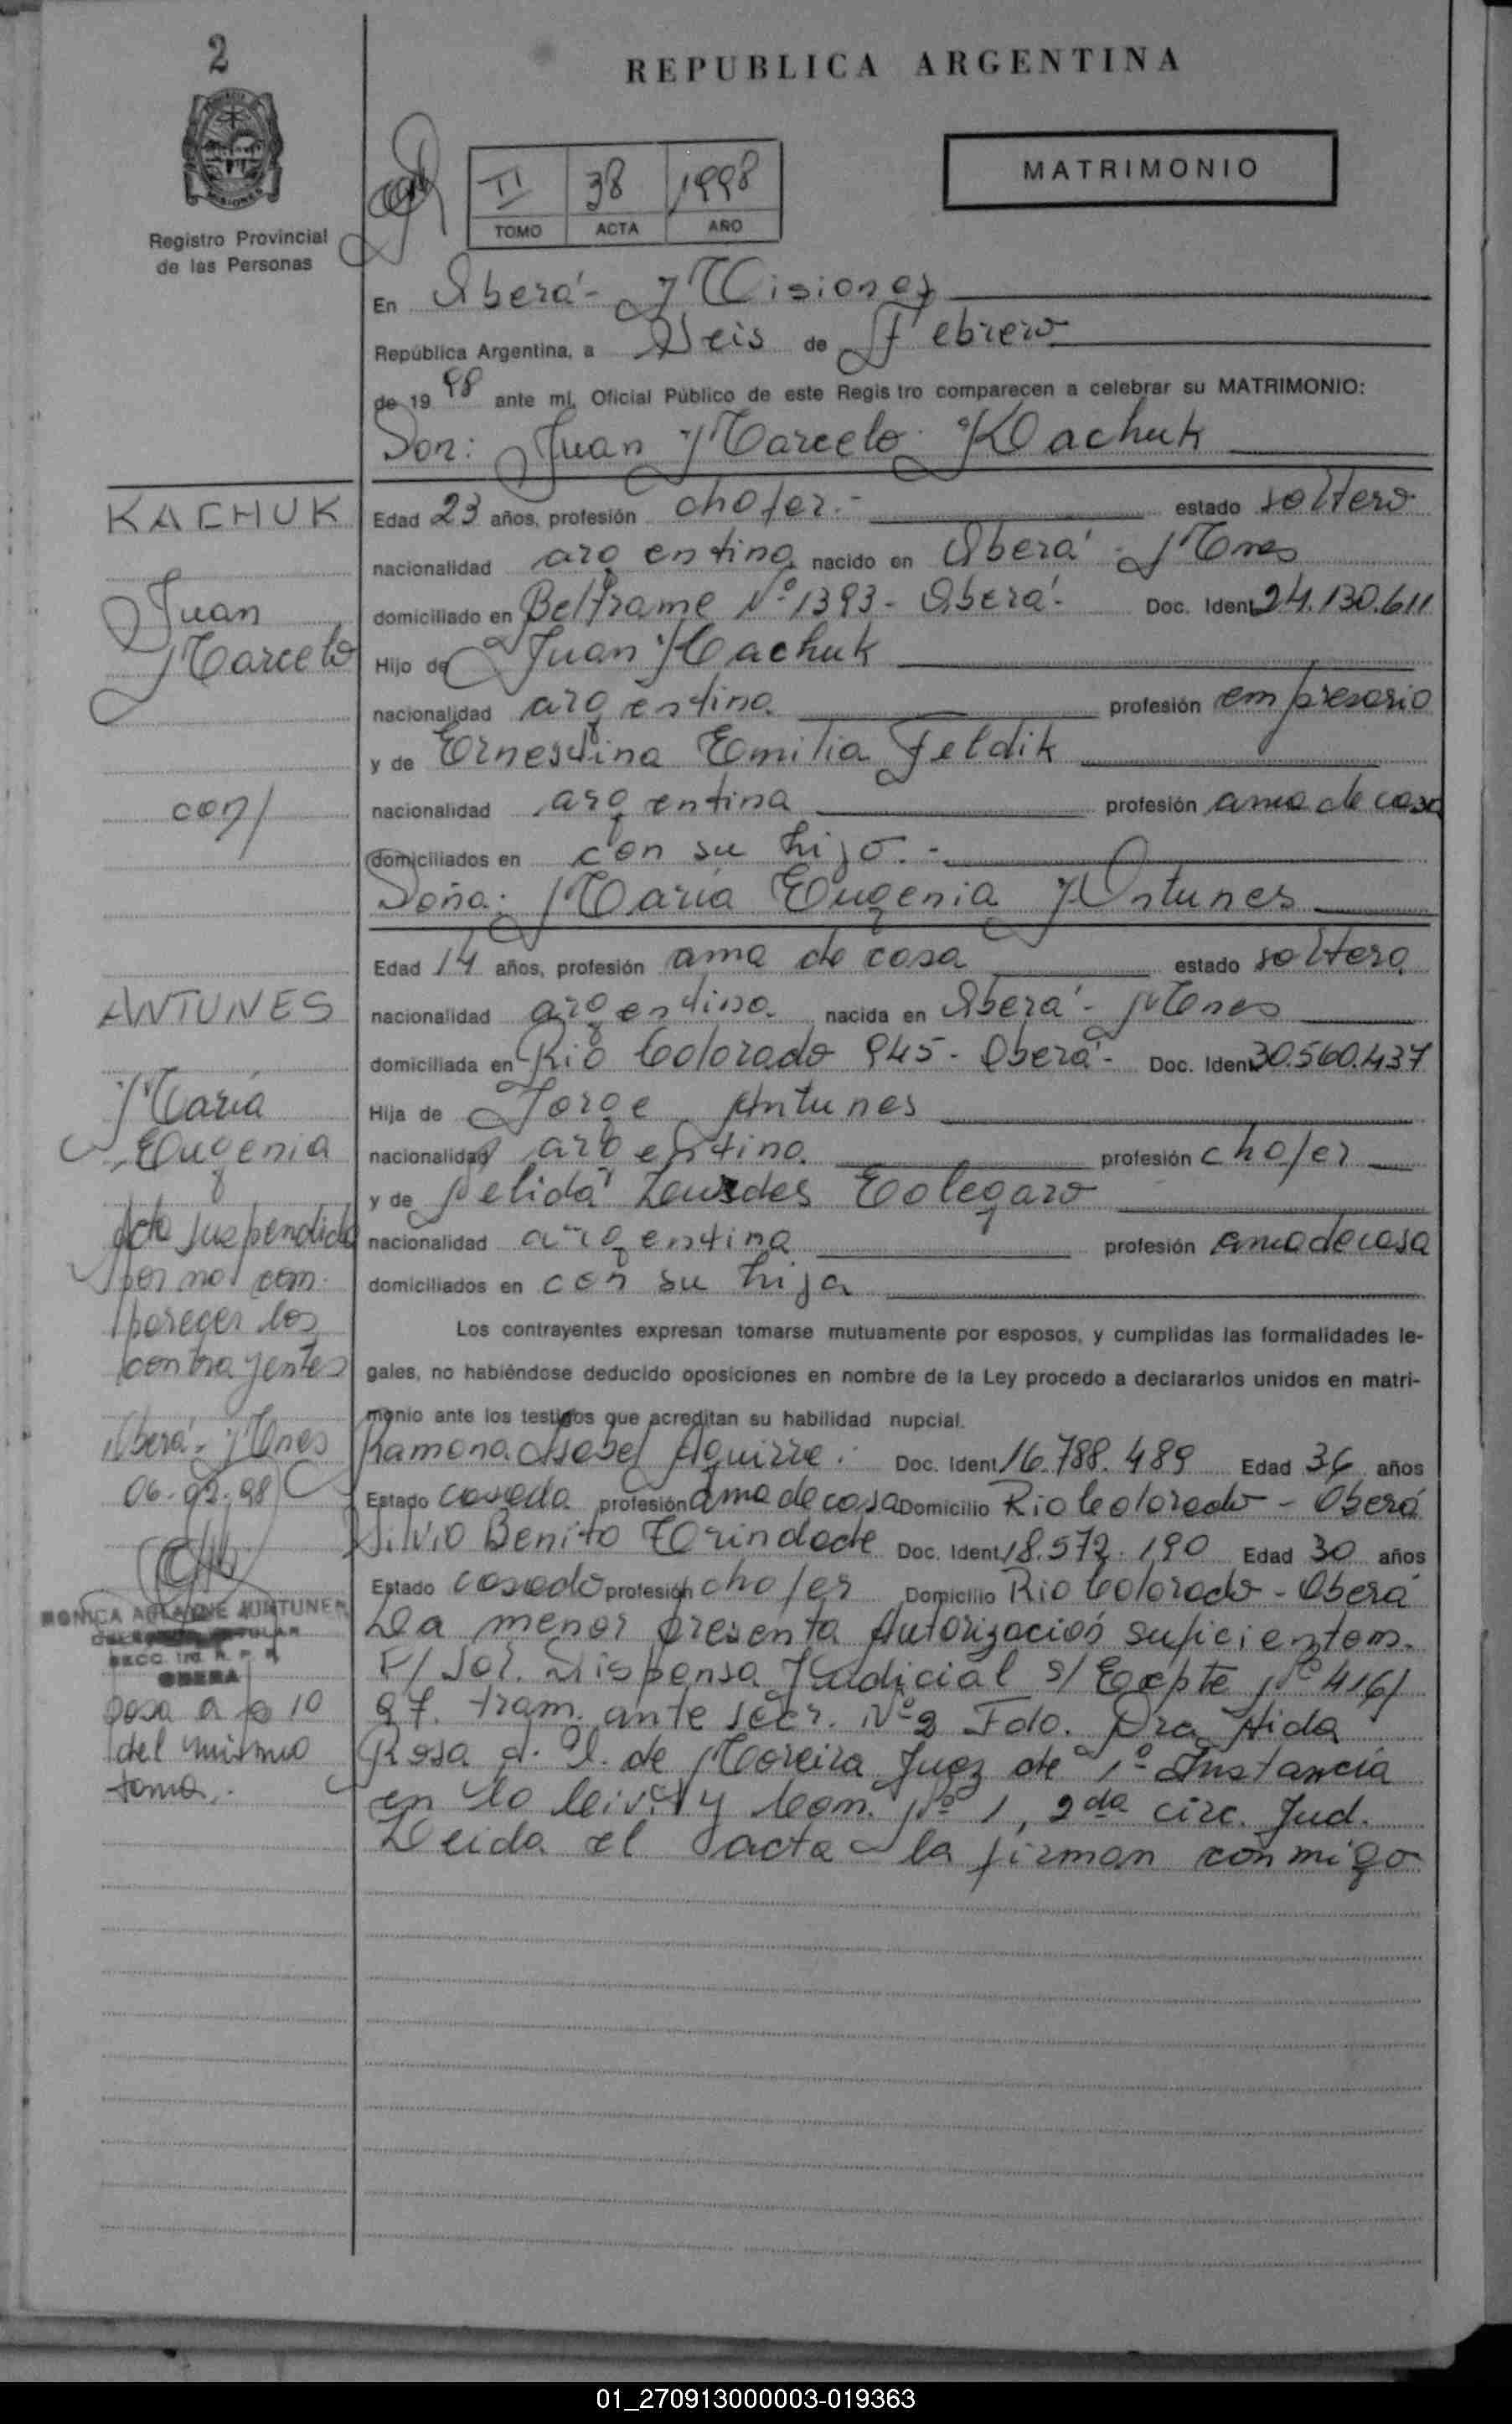 2
REPUBLICA ARGENTINA
MATRIMONIO
II 38 1998
TOMO ACTA AÑO
Registro Provincial
de las Personas
En Oberá - Misiones
República Argentina, a Seis de Febrero
de 1998 ante mí, Oficial Público de este Registro comparecen a celebrar su MATRIMONIO:
Don: Juan Marcelo Kachuk
KACHUK
Juan
Marcelo
con/
Edad 23 años, profesión chofer.- estado soltero
nacionalidad argentina nacido en Oberá - Mnes
domiciliado en Beltrame Nº 1393 - Oberá - Doc. Ident. 24.130.611
Hijo de Juan Kachuk
nacionalidad argentina profesión empresario
y de Ernestina Emilia Feldik
nacionalidad argentina profesión ama de casa
domiciliados en con su hijo.-
Doña: María Eugenia Antunes
ANTUNES
María
Eugenia
Edad 14 años, profesión ama de casa estado soltera
nacionalidad argentina nacida en Oberá - Mnes
domiciliada en Río Colorado 945 - Oberá - Doc. Ident. 30.560.437
Hija de Jorge Antunes
nacionalidad argentina profesión chofer
y de Nelida Lourdes
nacionalidad argentina profesión ama de casa
domiciliados en con su hija
Acto suspendido
por no com-
parecer los
contrayentes
Oberá - Mnes
06-02-98
MONICA
OBERA
pasa a fº 10
del mismo
tomo.
Los contrayentes expresan tomarse mutuamente por esposos, y cumplidas las formalidades le-
gales, no habiéndose deducido oposiciones en nombre de la Ley procedo a declararlos unidos en matri-
monio ante los testigos que acreditan su habilidad nupcial.
Ramona Isabel Aguirre. Doc. Ident. 16.788.489 Edad 36 años
Estado casada profesión ama de casa Domicilio Rio Colorado - Oberá
Silvio Benito Trindade Doc. Ident. 18.572.190 Edad 30 años
Estado casado profesión chofer Domicilio Rio Colorado - Oberá
La menor presenta Autorización
P/ Sol. Dispensa Judicial s/ Expte Nº 416/
97. tram. ante secr. Nº 2 Fdo. Dra Aida
Rosa de Moreira Juez de 1º Instancia
en lo Civil y Com. Nº 1, 2da circ. Jud.
Leida el acta la firman conmigo
01_270913000003-019363